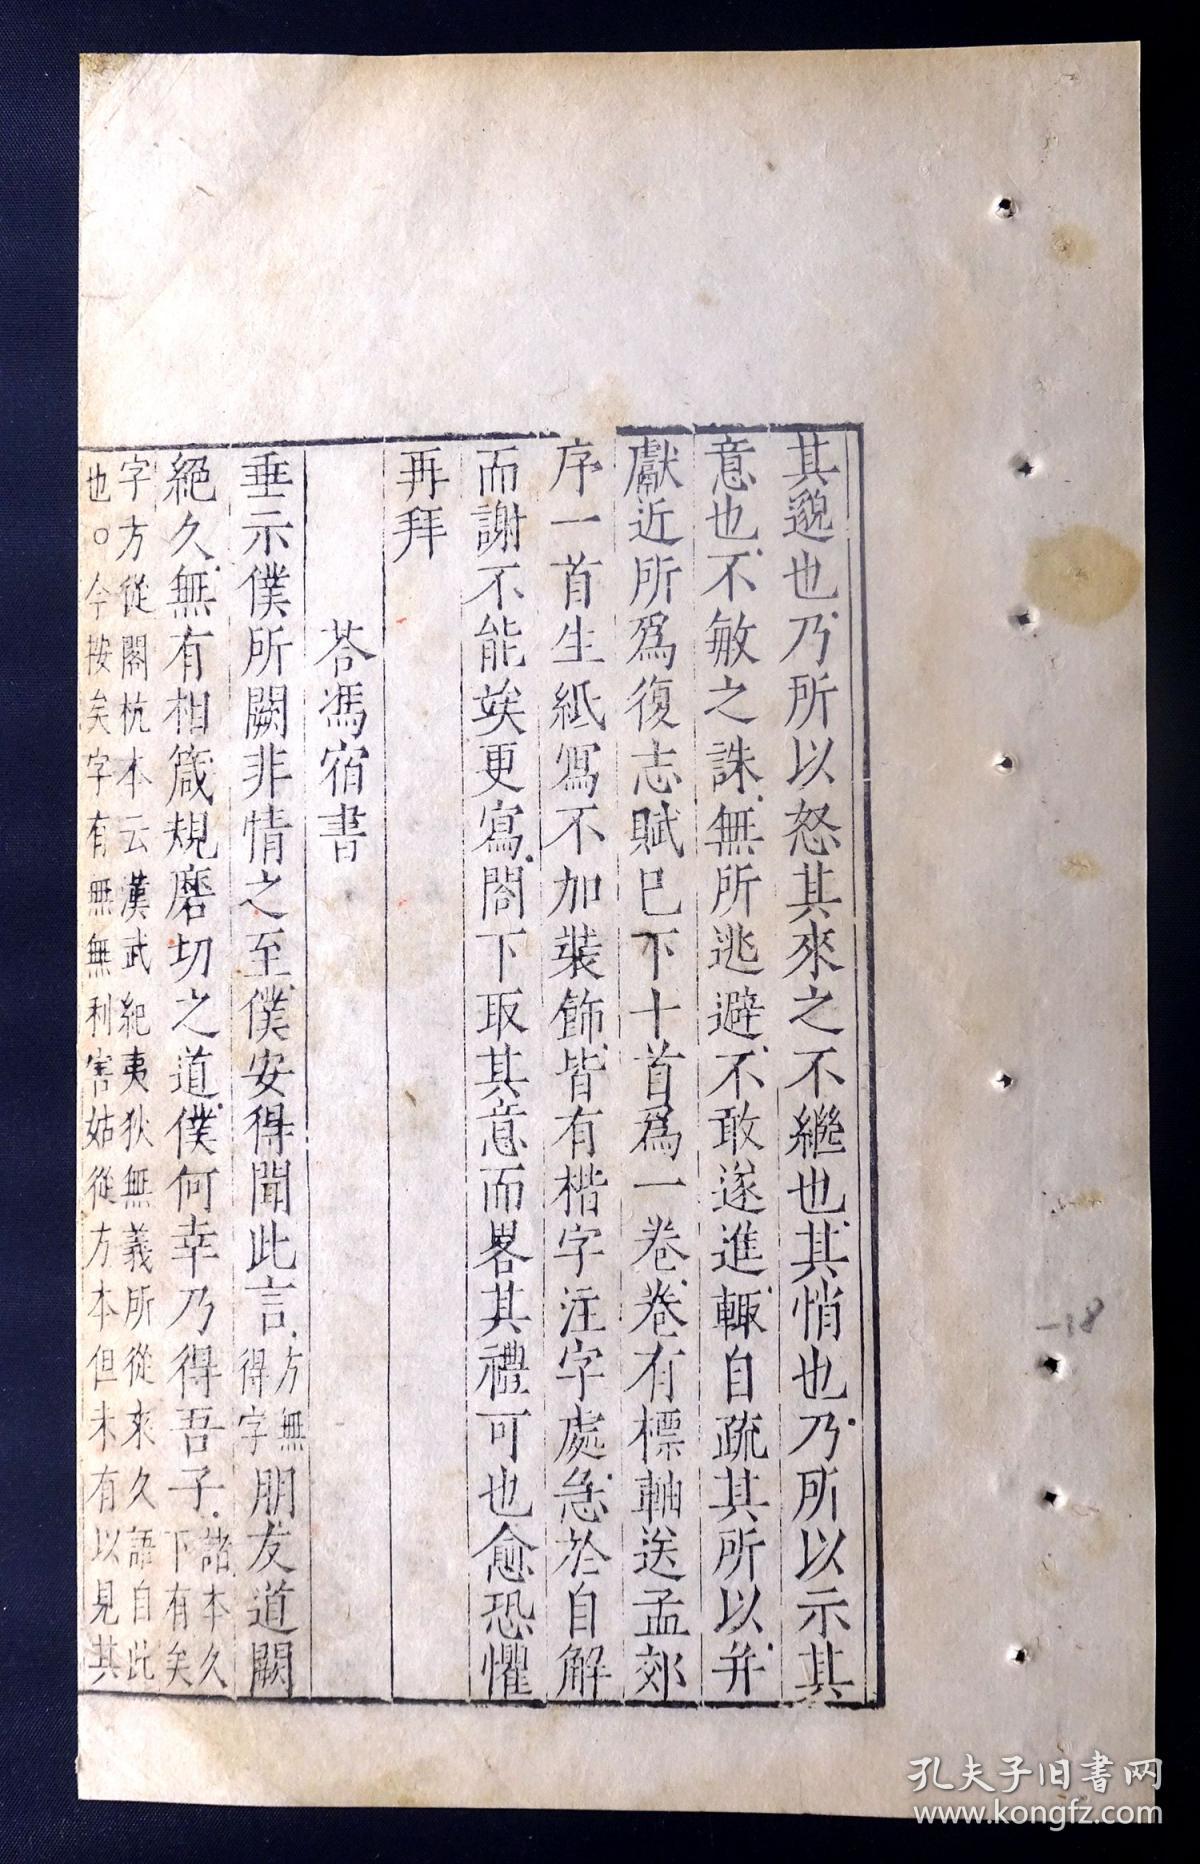 其邈也乃所以怒其來之不繼也其悄也乃所以示其
意也不敏之誅無所逃避不敢遂進輒自疏其所以并
獻近所爲復志賦已下十首爲一卷卷有標軸送孟郊
序一首生紙寫不加裝飾皆有楷字注字處急於自解
而謝不能竢更寫閤下取其意而畧其禮可也愈恐懼
再拜
荅馮宿書
垂示僕所闕非情之至僕安得聞此言方無得字朋友道闕
絕久無有相箴規磨切之道僕何幸乃得吾子諸本久下有矣
字方從閣杭本云漢武紀夷狄無義所從來久語自此
也○今按矣字有無無利害姑從方本但未有以見其
-18
孔夫子旧書网
www.kongfz.com